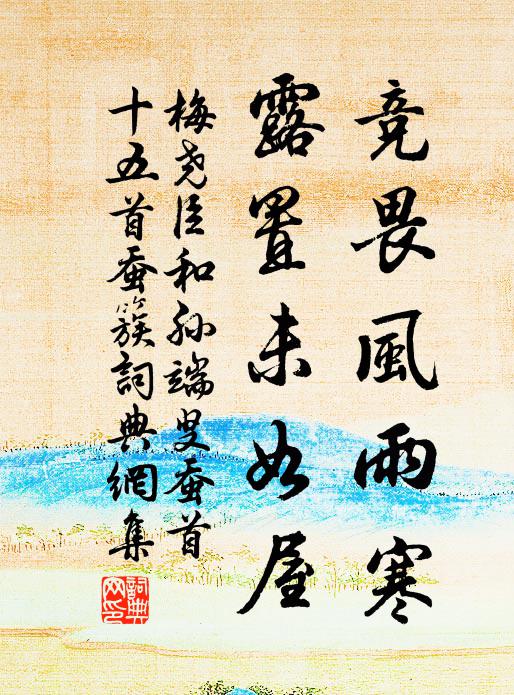 竞畏風雨寒
露置未如屋
梅尧臣和孙端叟蚕首
十五首蚕簇詞典網集
詞典